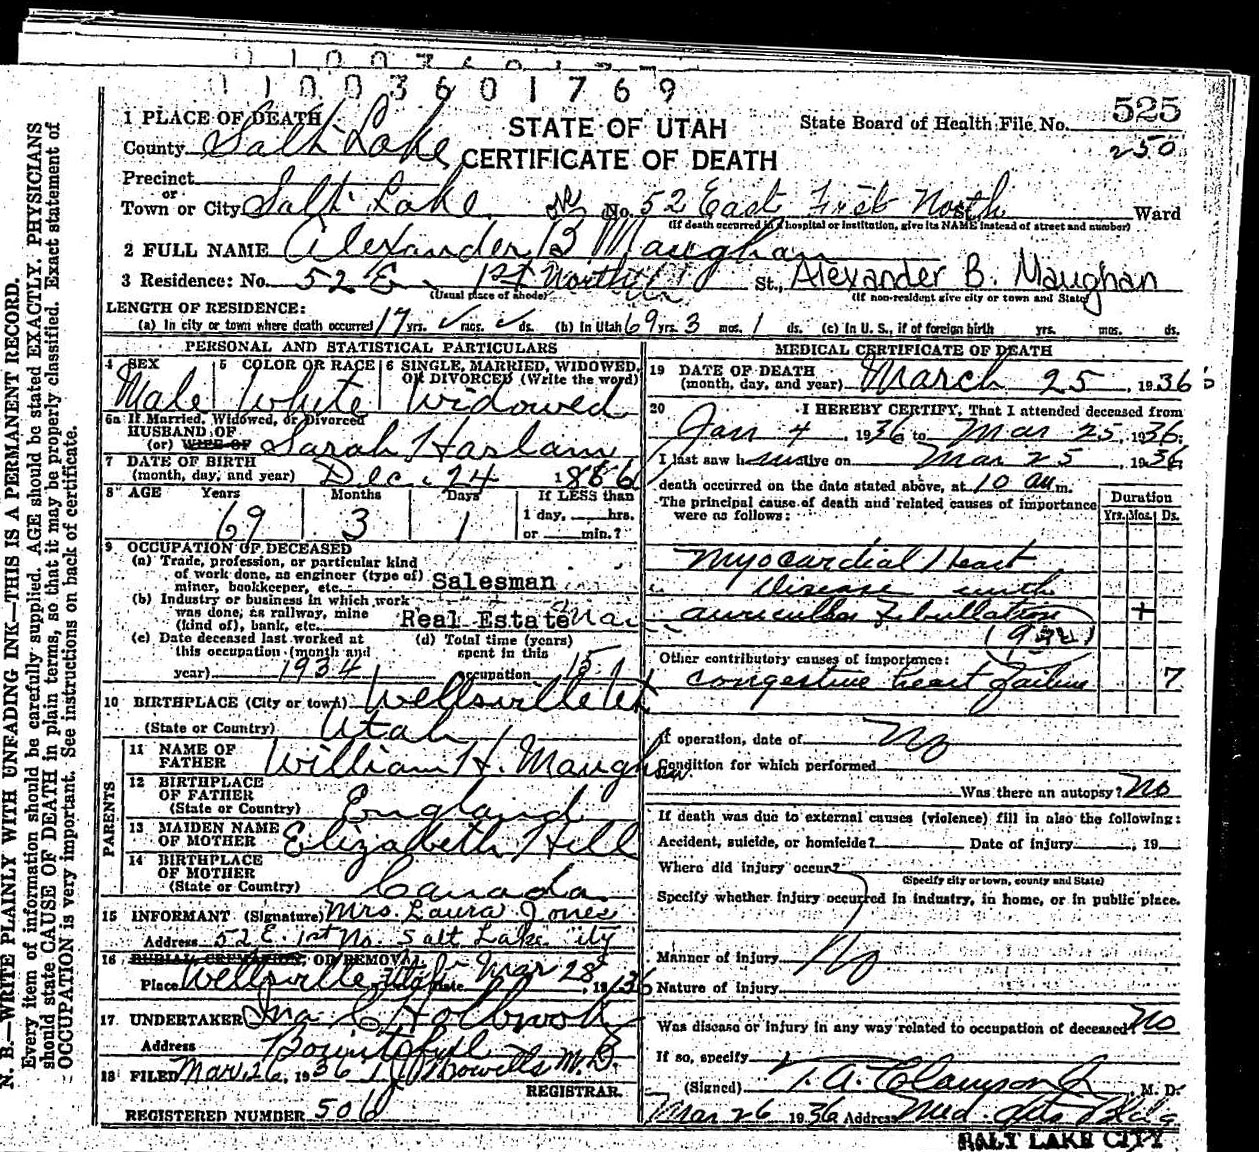 11003601769
1 PLACE OF DEATH
STATE OF UTAH
CERTIFICATE OF DEATH
State Board of Health File No. 525
250
County Salt Lake
Precinct
or
Town or City Salt Lake No. 52 East First North St. Ward
(If death occurred in a hospital or institution, give its NAME instead of street and number)
2 FULL NAME Alexander B Maughan
3 Residence: No. 52 E. 1st North St., Alexander B. Maughan
(Usual place of abode) (If non-resident give city or town and State)
LENGTH OF RESIDENCE:
(a) In city or town where death occurred 17 yrs. mos. ds. (b) In Utah 69 yrs. 3 mos. 1 ds. (c) In U. S., if of foreign birth yrs. mos. ds.
PERSONAL AND STATISTICAL PARTICULARS
4 SEX 5 COLOR OR RACE 6 SINGLE, MARRIED, WIDOWED, OR DIVORCED (Write the word)
Male White Widowed
6a If Married, Widowed, or Divorced
HUSBAND OF
(or) WIFE OF Sarah Haslam
7 DATE OF BIRTH
(month, day, and year) Dec. 24 1866
8 AGE Years Months Days If LESS than
69 3 1 1 day, hrs.
or min.?
9 OCCUPATION OF DECEASED
(a) Trade, profession, or particular kind
of work done, as engineer (type of)
miner, bookkeeper, etc. Salesman
(b) Industry or business in which work
was done; as railway, mine
(kind of), bank, etc. Real Estate
(c) Date deceased last worked at (d) Total time (years)
this occupation (month and spent in this
year) 1934 occupation 15
10 BIRTHPLACE (City or town) Wellsville Ut
(State or Country) Utah
PARENTS
11 NAME OF
FATHER William H. Maughan
12 BIRTHPLACE
OF FATHER
(State or Country) England
13 MAIDEN NAME
OF MOTHER Elizabeth Hill
14 BIRTHPLACE
OF MOTHER
(State or Country) Canada
15 INFORMANT (Signature) Mrs. Laura Jones
Address 52 E. 1st No. Salt Lake City
16 BURIAL, CREMATION, OR REMOVAL
Place Wellsville Utah Date Mar 28, 1936
17 UNDERTAKER Ina C Holbrook
Address Bountiful
18 FILED Mar. 26, 1936 M. D.
REGISTRAR.
REGISTERED NUMBER 506
MEDICAL CERTIFICATE OF DEATH
19 DATE OF DEATH
(month, day, and year) March 25, 1936
20 I HEREBY CERTIFY, That I attended deceased from
Jan 4, 1936 to Mar 25, 1936;
I last saw him alive on Mar 25, 1936
death occurred on the date stated above, at 10 a.m.
The principal cause of death and related causes of importance
were as follows: Duration
Yrs. Mos. Ds.
Myocardial Heart
Disease with
auricular fibrillation +
Other contributory causes of importance:
congestive heart failure 7
If operation, date of No
Condition for which performed
Was there an autopsy? No
If death was due to external causes (violence) fill in also the following:
Accident, suicide, or homicide? Date of injury, 19
Where did injury occur?
(Specify city or town, county and State)
Specify whether injury occurred in industry, in home, or in public place.
Manner of injury No
Nature of injury
Was disease or injury in any way related to occupation of deceased? No
If so, specify
(Signed) T. A. Clawson Jr, M. D.
Mar 26 1936 Address Med. Arts Bldg
SALT LAKE CITY
N. B.—WRITE PLAINLY WITH UNFADING INK—THIS IS A PERMANENT RECORD.
Every item of information should be carefully supplied. AGE should be stated EXACTLY. PHYSICIANS
should state CAUSE OF DEATH in plain terms, so that it may be properly classified. Exact statement of
OCCUPATION is very important. See instructions on back of certificate.